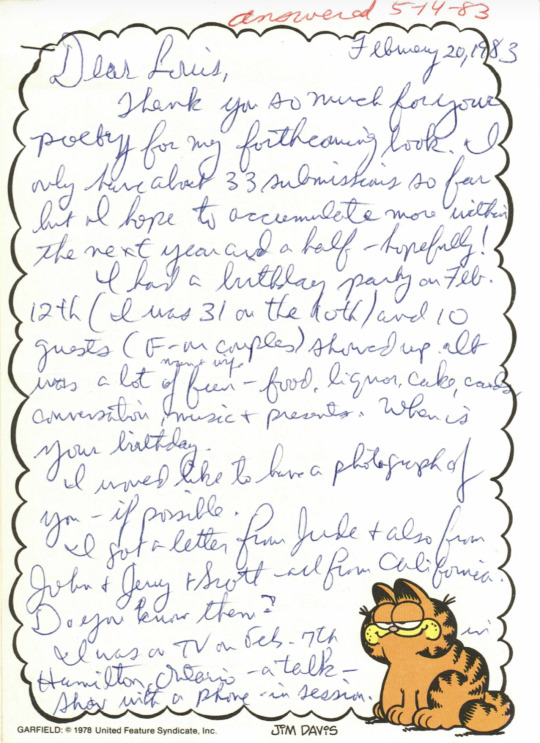 answered 5-14-83
February 20, 1983
Dear Louis,
Thank you so much for your
poetry for my forthcoming book. I
only have about 33 submissions so far
but I hope to accumulate more within
the next year and a half - hopefully!
I had a birthday party on Feb.
12th (I was 31 on the 10th) and 10
guests (F-M couples) showed up. It
man & wife
was a lot of fun - food, liquor, cake, cards
conversation, music + presents. When is
your birthday.
I would like to have a photograph of
you - if possible.
I got a letter from Jude + also from
John + Jerry + Scott - all from California.
Do you know them?
I was on TV on Feb. 7th in
Hamilton, Ontario - a talk -
show with a phone-in session.
GARFIELD: © 1978 United Feature Syndicate, Inc.
JIM DAVIS